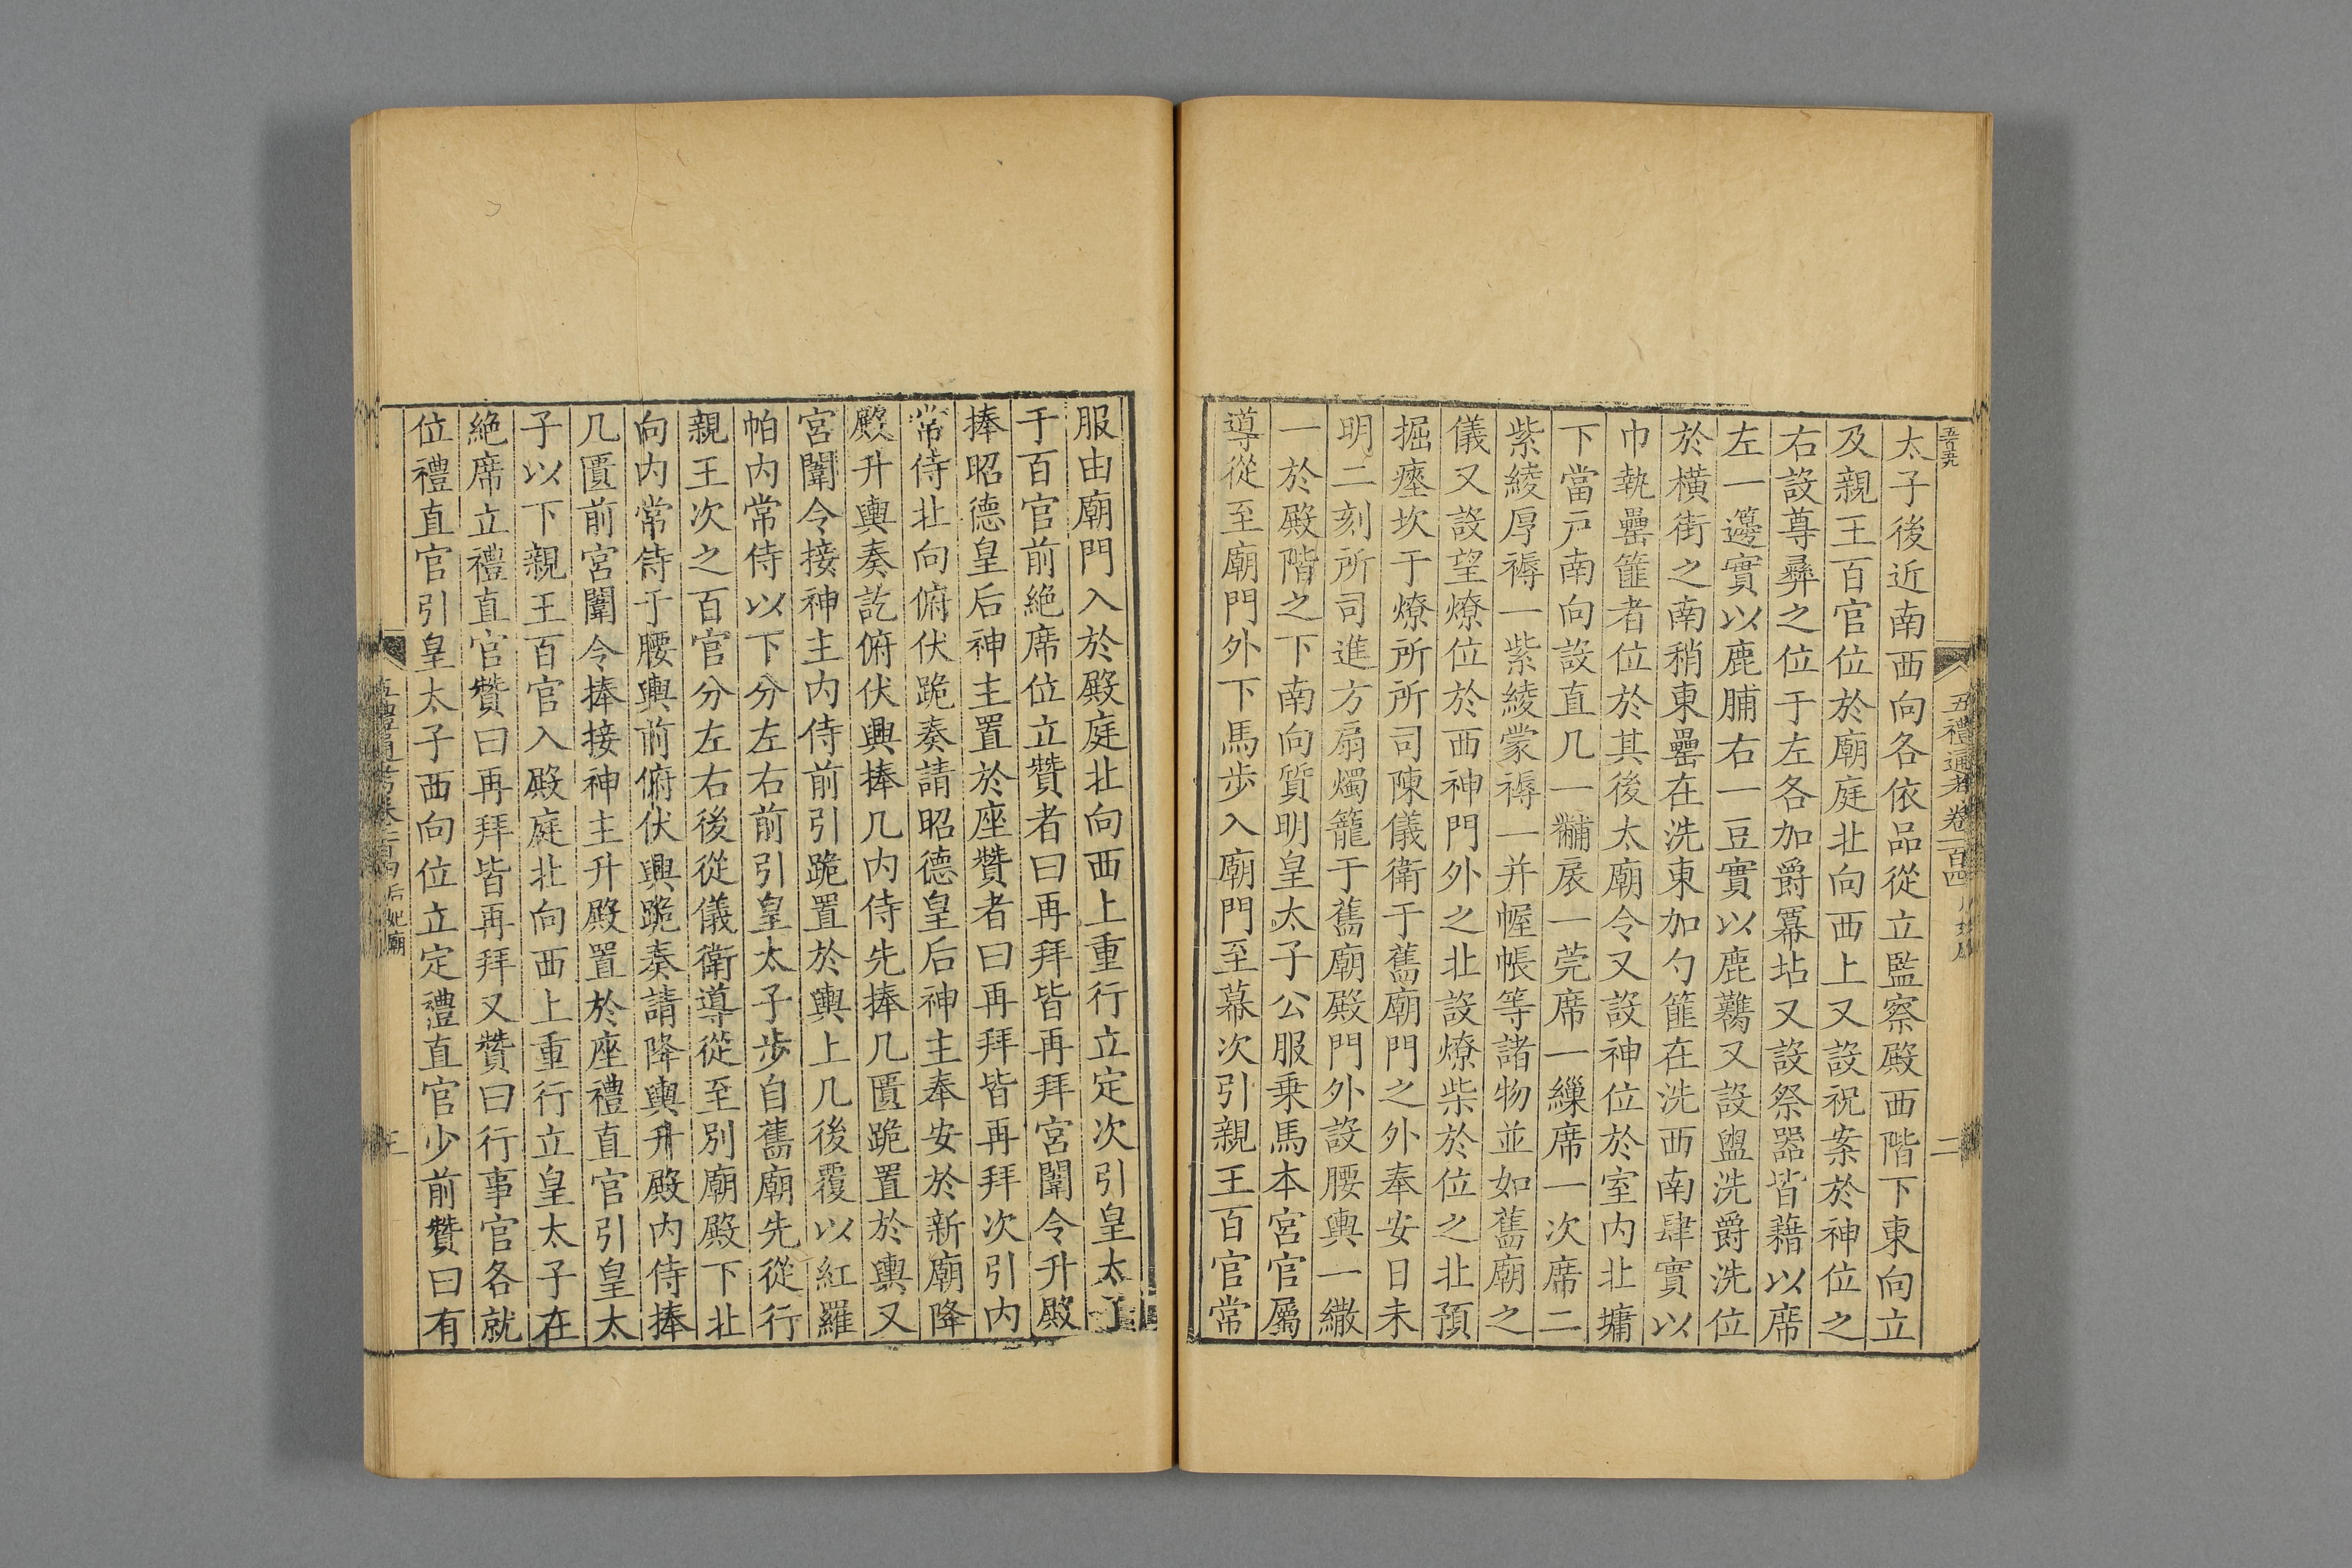 五禮通考卷一百四
二
太子後近南西向各依品從立監察殿西階下東向立
及親王百官位於廟庭北向西上又設祝案於神位之
右設尊彛之位于左各加爵冪坫又設祭器皆藉以席
左一籩實以鹿脯右一豆實以鹿臡又設盥洗爵洗位
於橫街之南稍東罍在洗東加勺篚在洗西南肆實以
巾執罍篚者位於其後太廟令又設神位於室内北墉
下當戸南向設直几一黼扆一莞席一繅席一次席二
紫綾厚褥一紫綾蒙褥一并幄帳等諸物並如舊廟之
儀又設望燎位於西神門外之北設燎柴於位之北預
掘瘞坎于燎所所司陳儀衛于舊廟門之外奉安日未
明二刻所司進方扇燭籠于舊廟殿門外設腰輿一繖
一於殿階之下南向質明皇太子公服乗馬本宮官屬
導從至廟門外下馬歩入廟門至幕次引親王百官常
服由廟門入於殿庭北向西上重行立定次引皇太子
于百官前絶席位立贊者曰再拜皆再拜宮闈令升殿
捧昭德皇后神主置於座贊者曰再拜皆再拜次引内
常侍北向俯伏跪奏請昭德皇后神主奉安於新廟降
殿升輿奏訖俯伏興捧几内侍先捧几匱跪置於輿又
宮闈令接神主内侍前引跪置於輿上几後覆以紅羅
帕内常侍以下分左右前引皇太子歩自舊廟先從行
親王次之百官分左右後從儀衛導從至別廟殿下北
向内常侍于腰輿前俯伏興跪奏請降輿升殿内侍捧
几匱前宮闈令捧接神主升殿置於座禮直官引皇太
子以下親王百官入殿庭北向西上重行立皇太子在
絶席立禮直官贊曰再拜皆再拜又贊曰行事官各就
位禮直官引皇太子西向位立定禮直官少前贊曰有
后妃廟